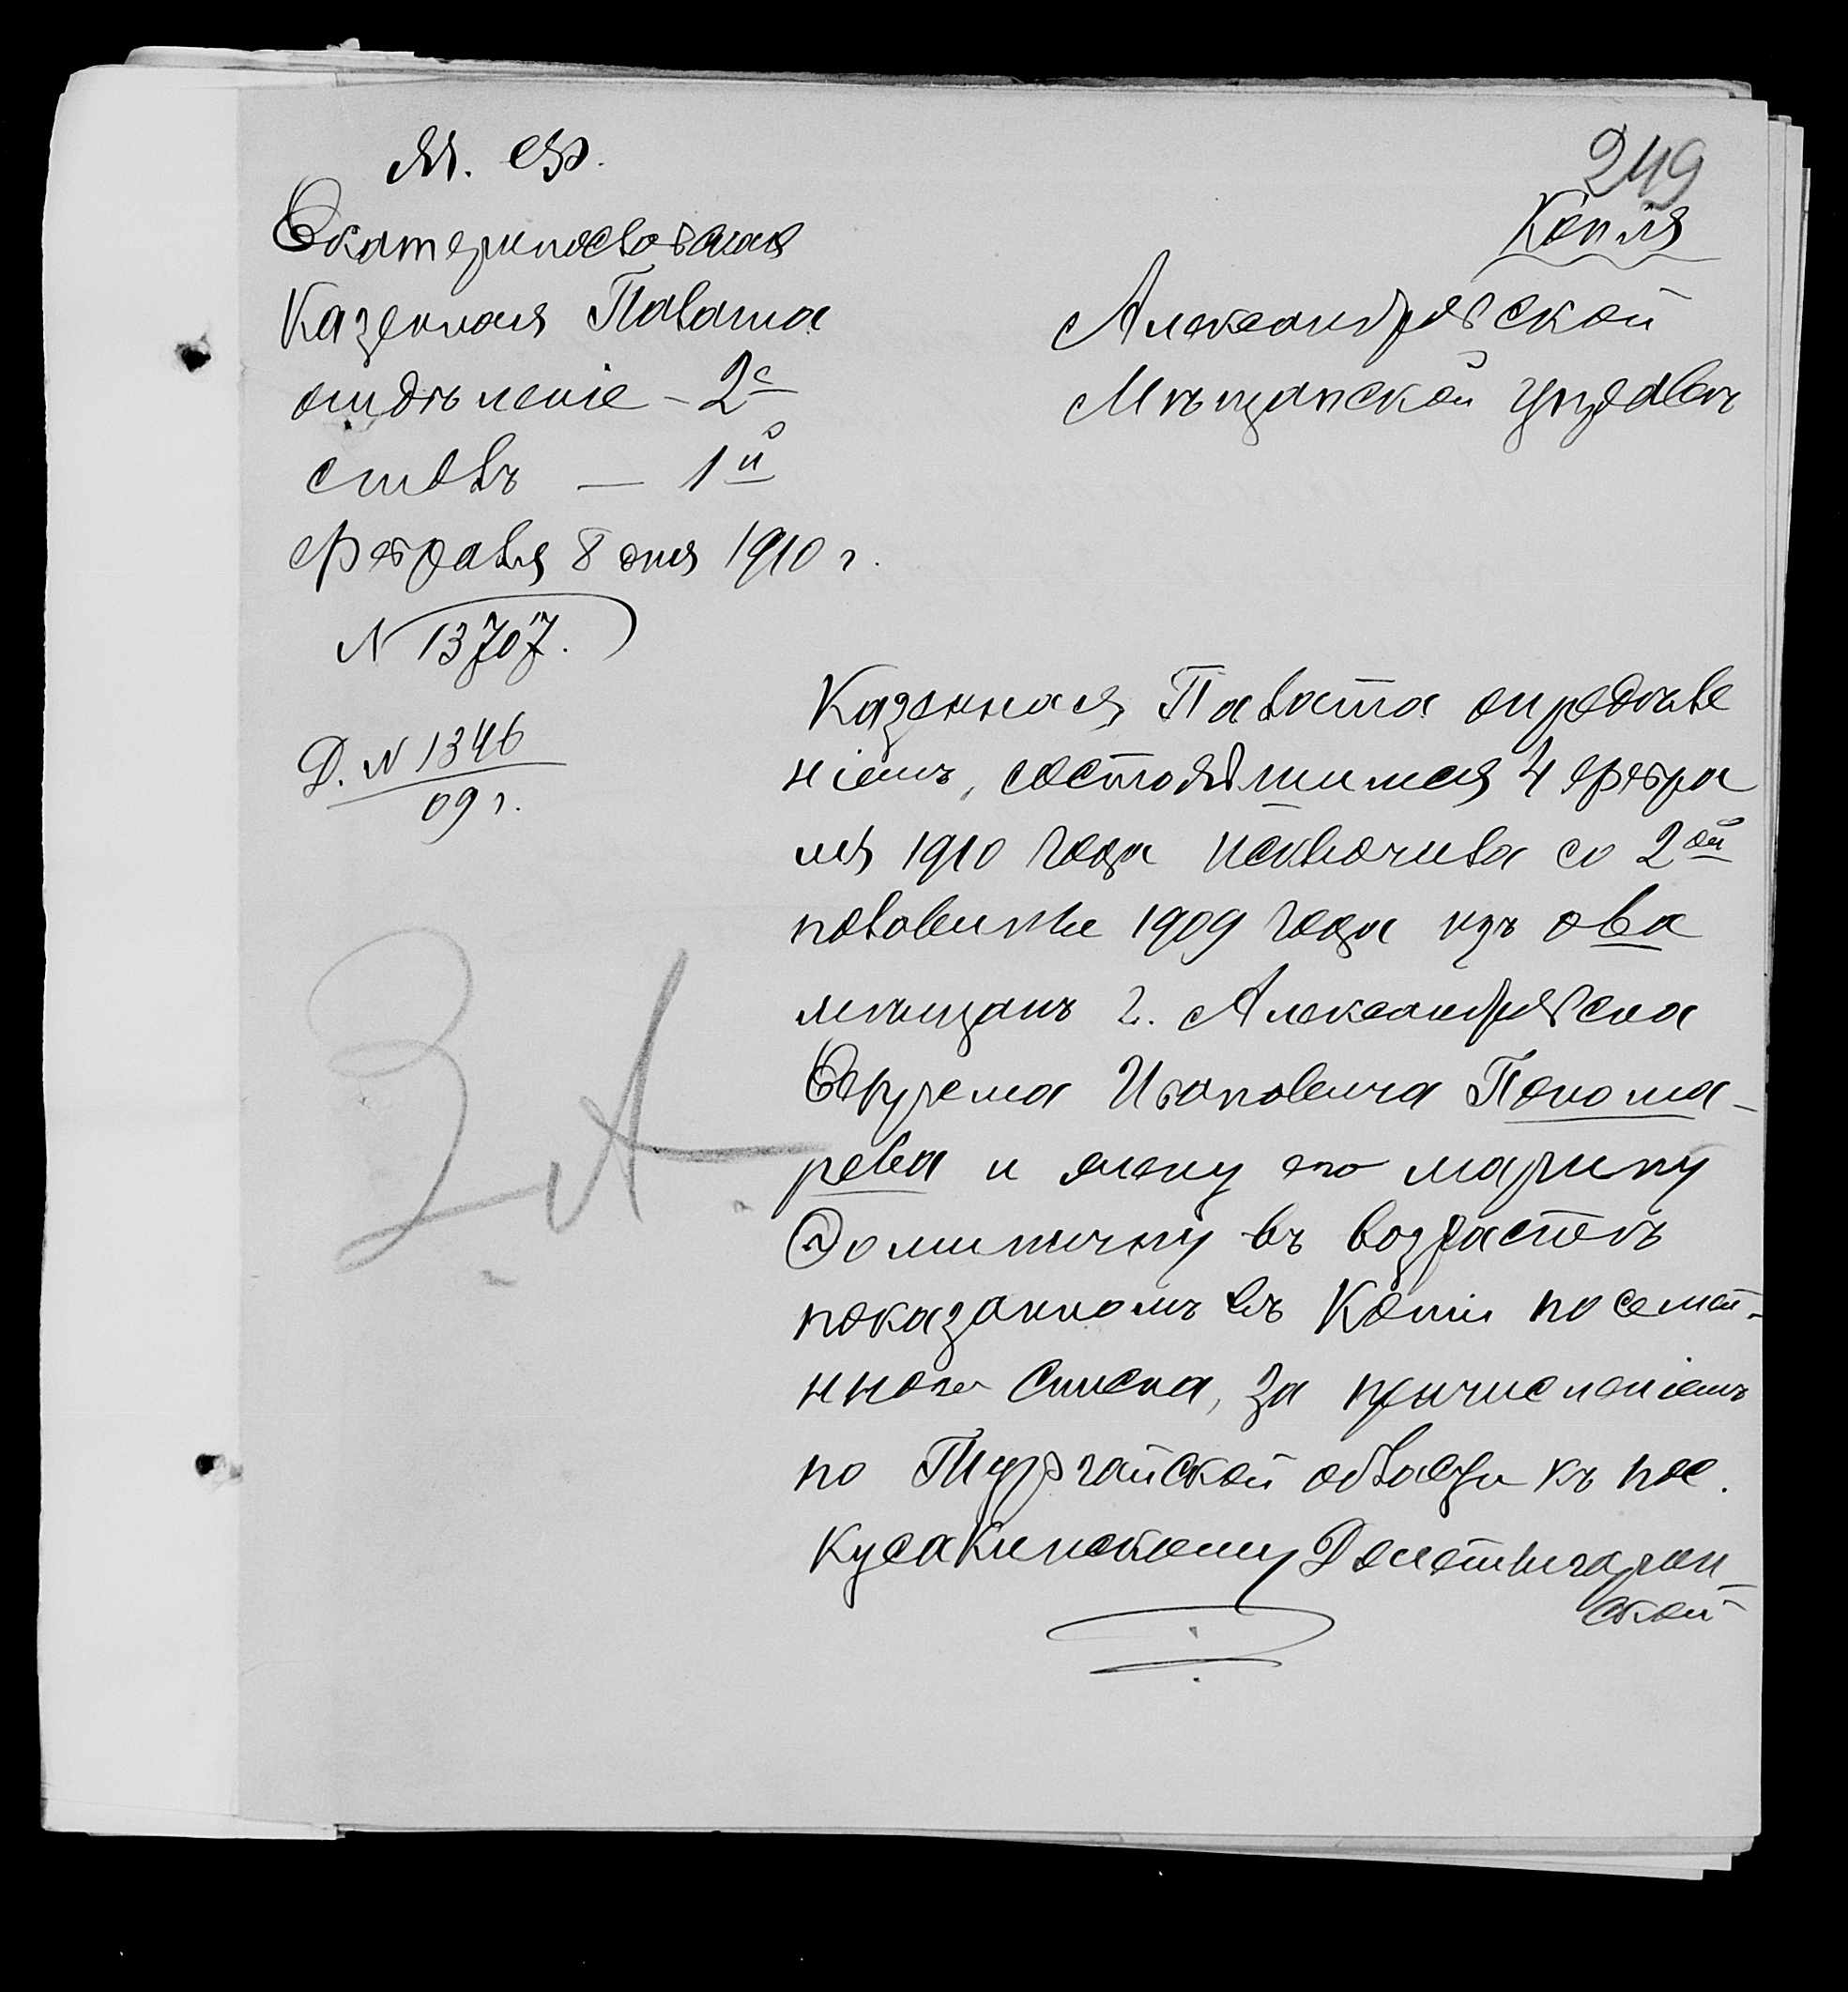 М. Ф.
Екатеринославская
Казенная Палата
отдѣленіе – 2е
столъ — 1й
Февраля 8 дня 1910 г.
N 13707.
Д. N 1346
09 г.
249
Копія
Александровской
Мѣщанской Управѣ
Казенная Палата опредѣле
ніемъ, состоявшимся 4 Февра
ля 1910 года исключила со 2ой
половины 1909 года изъ о-ва
мѣщанъ г. Александровска
Ефрема Ивановича Понома-
рева и жену его Марину
Доминичну въ возрастѣ
показанномъ въ Копіи посемей-
ннаго Списка, за причисленіемъ
по Тургайской области къ пос.
Кусакинскому
ской
З. А.